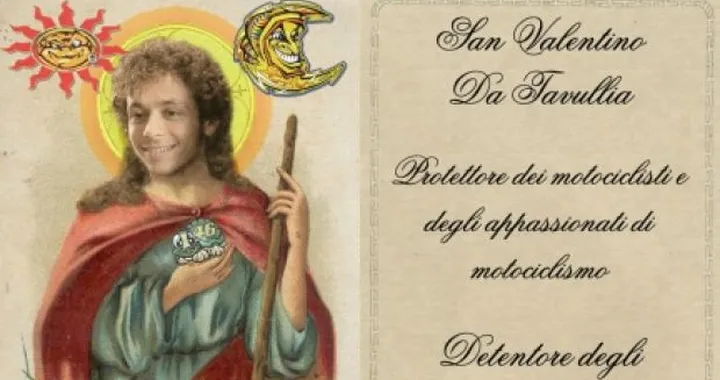 46
San Valentino
Da Tavullia
Protettore dei motociclisti e
degli appassionati di
motociclismo
Detentore degli